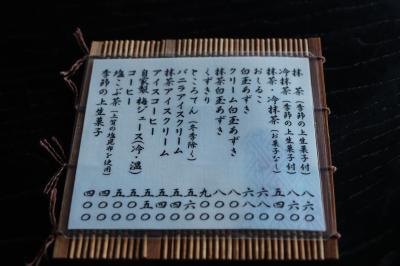 抹 茶 (季節の上生菓子付) 八六〇
冷抹茶 (季節の上生菓子付) 八六〇
抹茶・冷抹茶 (お菓子なし) 五四〇
おしるこ
白玉あずき
クリーム白玉あずき
抹茶白玉あずき
くずきり 九〇〇
ところてん (冬季除く)
バニラアイスクリーム
抹茶アイスクリーム
アイスコーヒー
自家製 梅ジュース (冷・温)
コーヒー
塩こぶ茶 (上質の塩昆布を使用) 四〇〇
季節の上生菓子 四〇〇